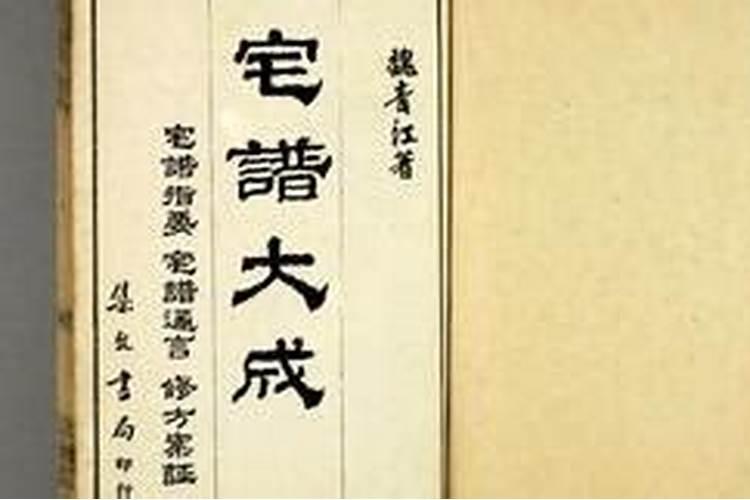 魏青江著
宅譜大成
宅譜指要 宅譜通言 修方案証
集文書局印行